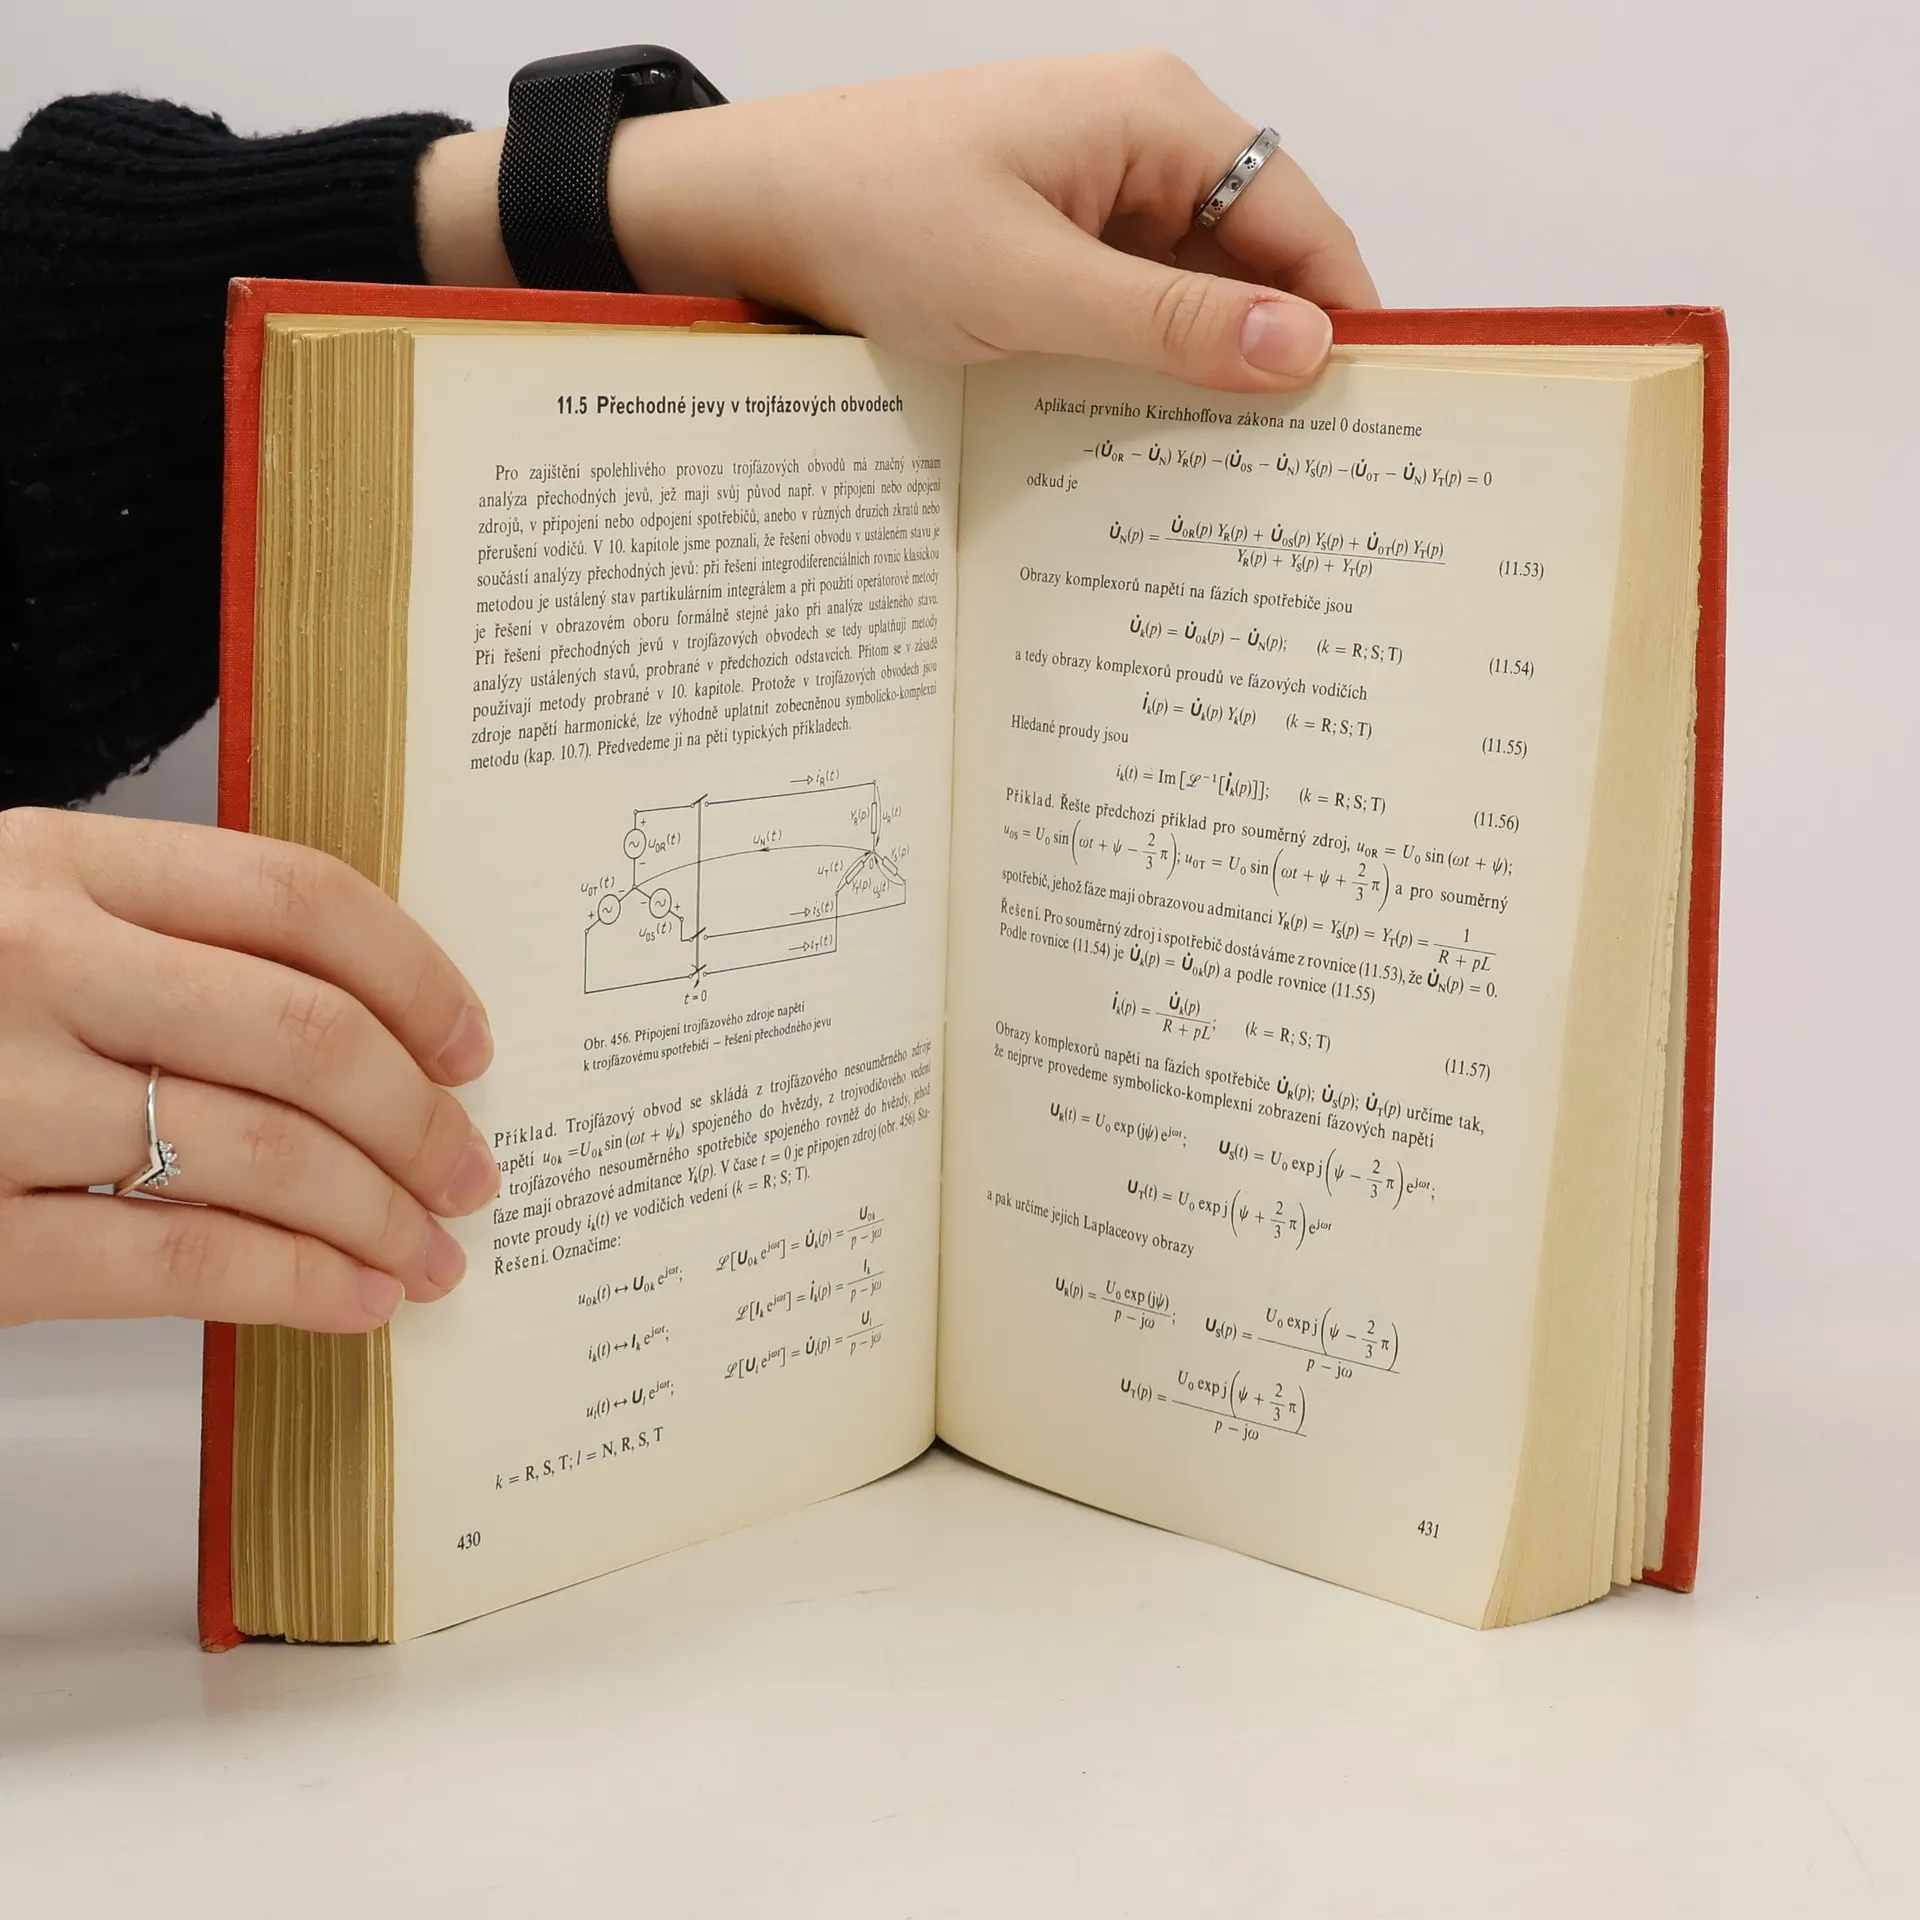 11.5 Přechodné jevy v trojfázových obvodech
Pro zajištění spolehlivého provozu trojfázových obvodů má značný význam
analýza přechodných jevů, jež mají svůj původ např. v připojení nebo odpojení
zdrojů, v připojení nebo odpojení spotřebičů, anebo v různých druzích zkratů nebo
přerušení vodičů. V 10. kapitole jsme poznali, že řešení obvodu v ustáleném stavu je
součástí analýzy přechodných jevů: při řešení integrodiferenciálních rovnic klasickou
metodou je ustálený stav partikulárním integrálem a při použití operátorové metody
je řešení v obrazovém oboru formálně stejné jako při analýze ustáleného stavu.
Při řešení přechodných jevů v trojfázových obvodech se tedy uplatňují metody
analýzy ustálených stavů, probrané v předchozích odstavcích. Přitom se v zásadě
používají metody probrané v 10. kapitole. Protože v trojfázových obvodech jsou
zdroje napětí harmonické, lze výhodně uplatnit zobecněnou symbolicko-komplexní
metodu (kap. 10.7). Předvedeme ji na pěti typických příkladech.
i_R(t)
+
u_0R(t)
−
u_N(t)
Y_R(p) u_R(t)
u_T(t) 0 Y_S(p)
Y_T(p) u_S(t)
u_0T(t) −
+ − +
u_0S(t)
i_S(t)
i_T(t)
t=0
Obr. 456. Připojení trojfázového zdroje napětí
k trojfázovému spotřebiči – řešení přechodného jevu
Příklad. Trojfázový obvod se skládá z trojfázového nesouměrného zdroje
napětí u_0k = U_0k sin (ωt + ψ_k) spojeného do hvězdy, z trojvodičového vedení
trojfázového nesouměrného spotřebiče spojeného rovněž do hvězdy, jehož
fáze mají obrazové admitance Y_k(p). V čase t = 0 je připojen zdroj (obr. 456). Sta-
novte proudy i_k(t) ve vodičích vedení (k = R; S; T).
Řešení. Označíme:
u_0k(t) ↔ U_0k e^jωt; ℒ[U_0k e^jωt] = U̇_k(p) = U_0k / (p − jω)
i_k(t) ↔ I_k e^jωt; ℒ[I_k e^jωt] = İ_k(p) = I_k / (p − jω)
u_l(t) ↔ U_l e^jωt; ℒ[U_l e^jωt] = U̇_l(p) = U_l / (p − jω)
k = R, S, T; l = N, R, S, T
430
Aplikací prvního Kirchhoffova zákona na uzel 0 dostaneme
−(U̇_0R − U̇_N) Y_R(p) −(U̇_0S − U̇_N) Y_S(p) −(U̇_0T − U̇_N) Y_T(p) = 0
odkud je
U̇_N(p) = (U̇_0R(p) Y_R(p) + U̇_0S(p) Y_S(p) + U̇_0T(p) Y_T(p)) / (Y_R(p) + Y_S(p) + Y_T(p)) (11.53)
Obrazy komplexorů napětí na fázích spotřebiče jsou
U̇_k(p) = U̇_0k(p) − U̇_N(p); (k = R; S; T) (11.54)
a tedy obrazy komplexorů proudů ve fázových vodičích
İ_k(p) = U̇_k(p) Y_k(p) (k = R; S; T) (11.55)
Hledané proudy jsou
i_k(t) = Im [ℒ⁻¹[İ_k(p)]]; (k = R; S; T) (11.56)
Příklad. Řešte předchozí příklad pro souměrný zdroj, u_0R = U_0 sin (ωt + ψ);
u_0S = U_0 sin (ωt + ψ − 2/3 π); u_0T = U_0 sin (ωt + ψ + 2/3 π) a pro souměrný
spotřebič, jehož fáze mají obrazovou admitanci Y_R(p) = Y_S(p) = Y_T(p) = 1 / (R + pL)
Řešení. Pro souměrný zdroj i spotřebič dostáváme z rovnice (11.53), že U̇_N(p) = 0.
Podle rovnice (11.54) je U̇_k(p) = U̇_0k(p) a podle rovnice (11.55)
İ_k(p) = U̇_k(p) / (R + pL); (k = R; S; T) (11.57)
Obrazy komplexorů napětí na fázích spotřebiče U̇_R(p); U̇_S(p); U̇_T(p) určíme tak,
že nejprve provedeme symbolicko-komplexní zobrazení fázových napětí
U_R(t) = U_0 exp (jψ) e^jωt; U_S(t) = U_0 exp j(ψ − 2/3 π) e^jωt;
U_T(t) = U_0 exp j(ψ + 2/3 π) e^jωt
a pak určíme jejich Laplaceovy obrazy
U_R(p) = U_0 exp (jψ) / (p − jω); U_S(p) = U_0 exp j(ψ − 2/3 π) / (p − jω)
U_T(p) = U_0 exp j(ψ + 2/3 π) / (p − jω)
431